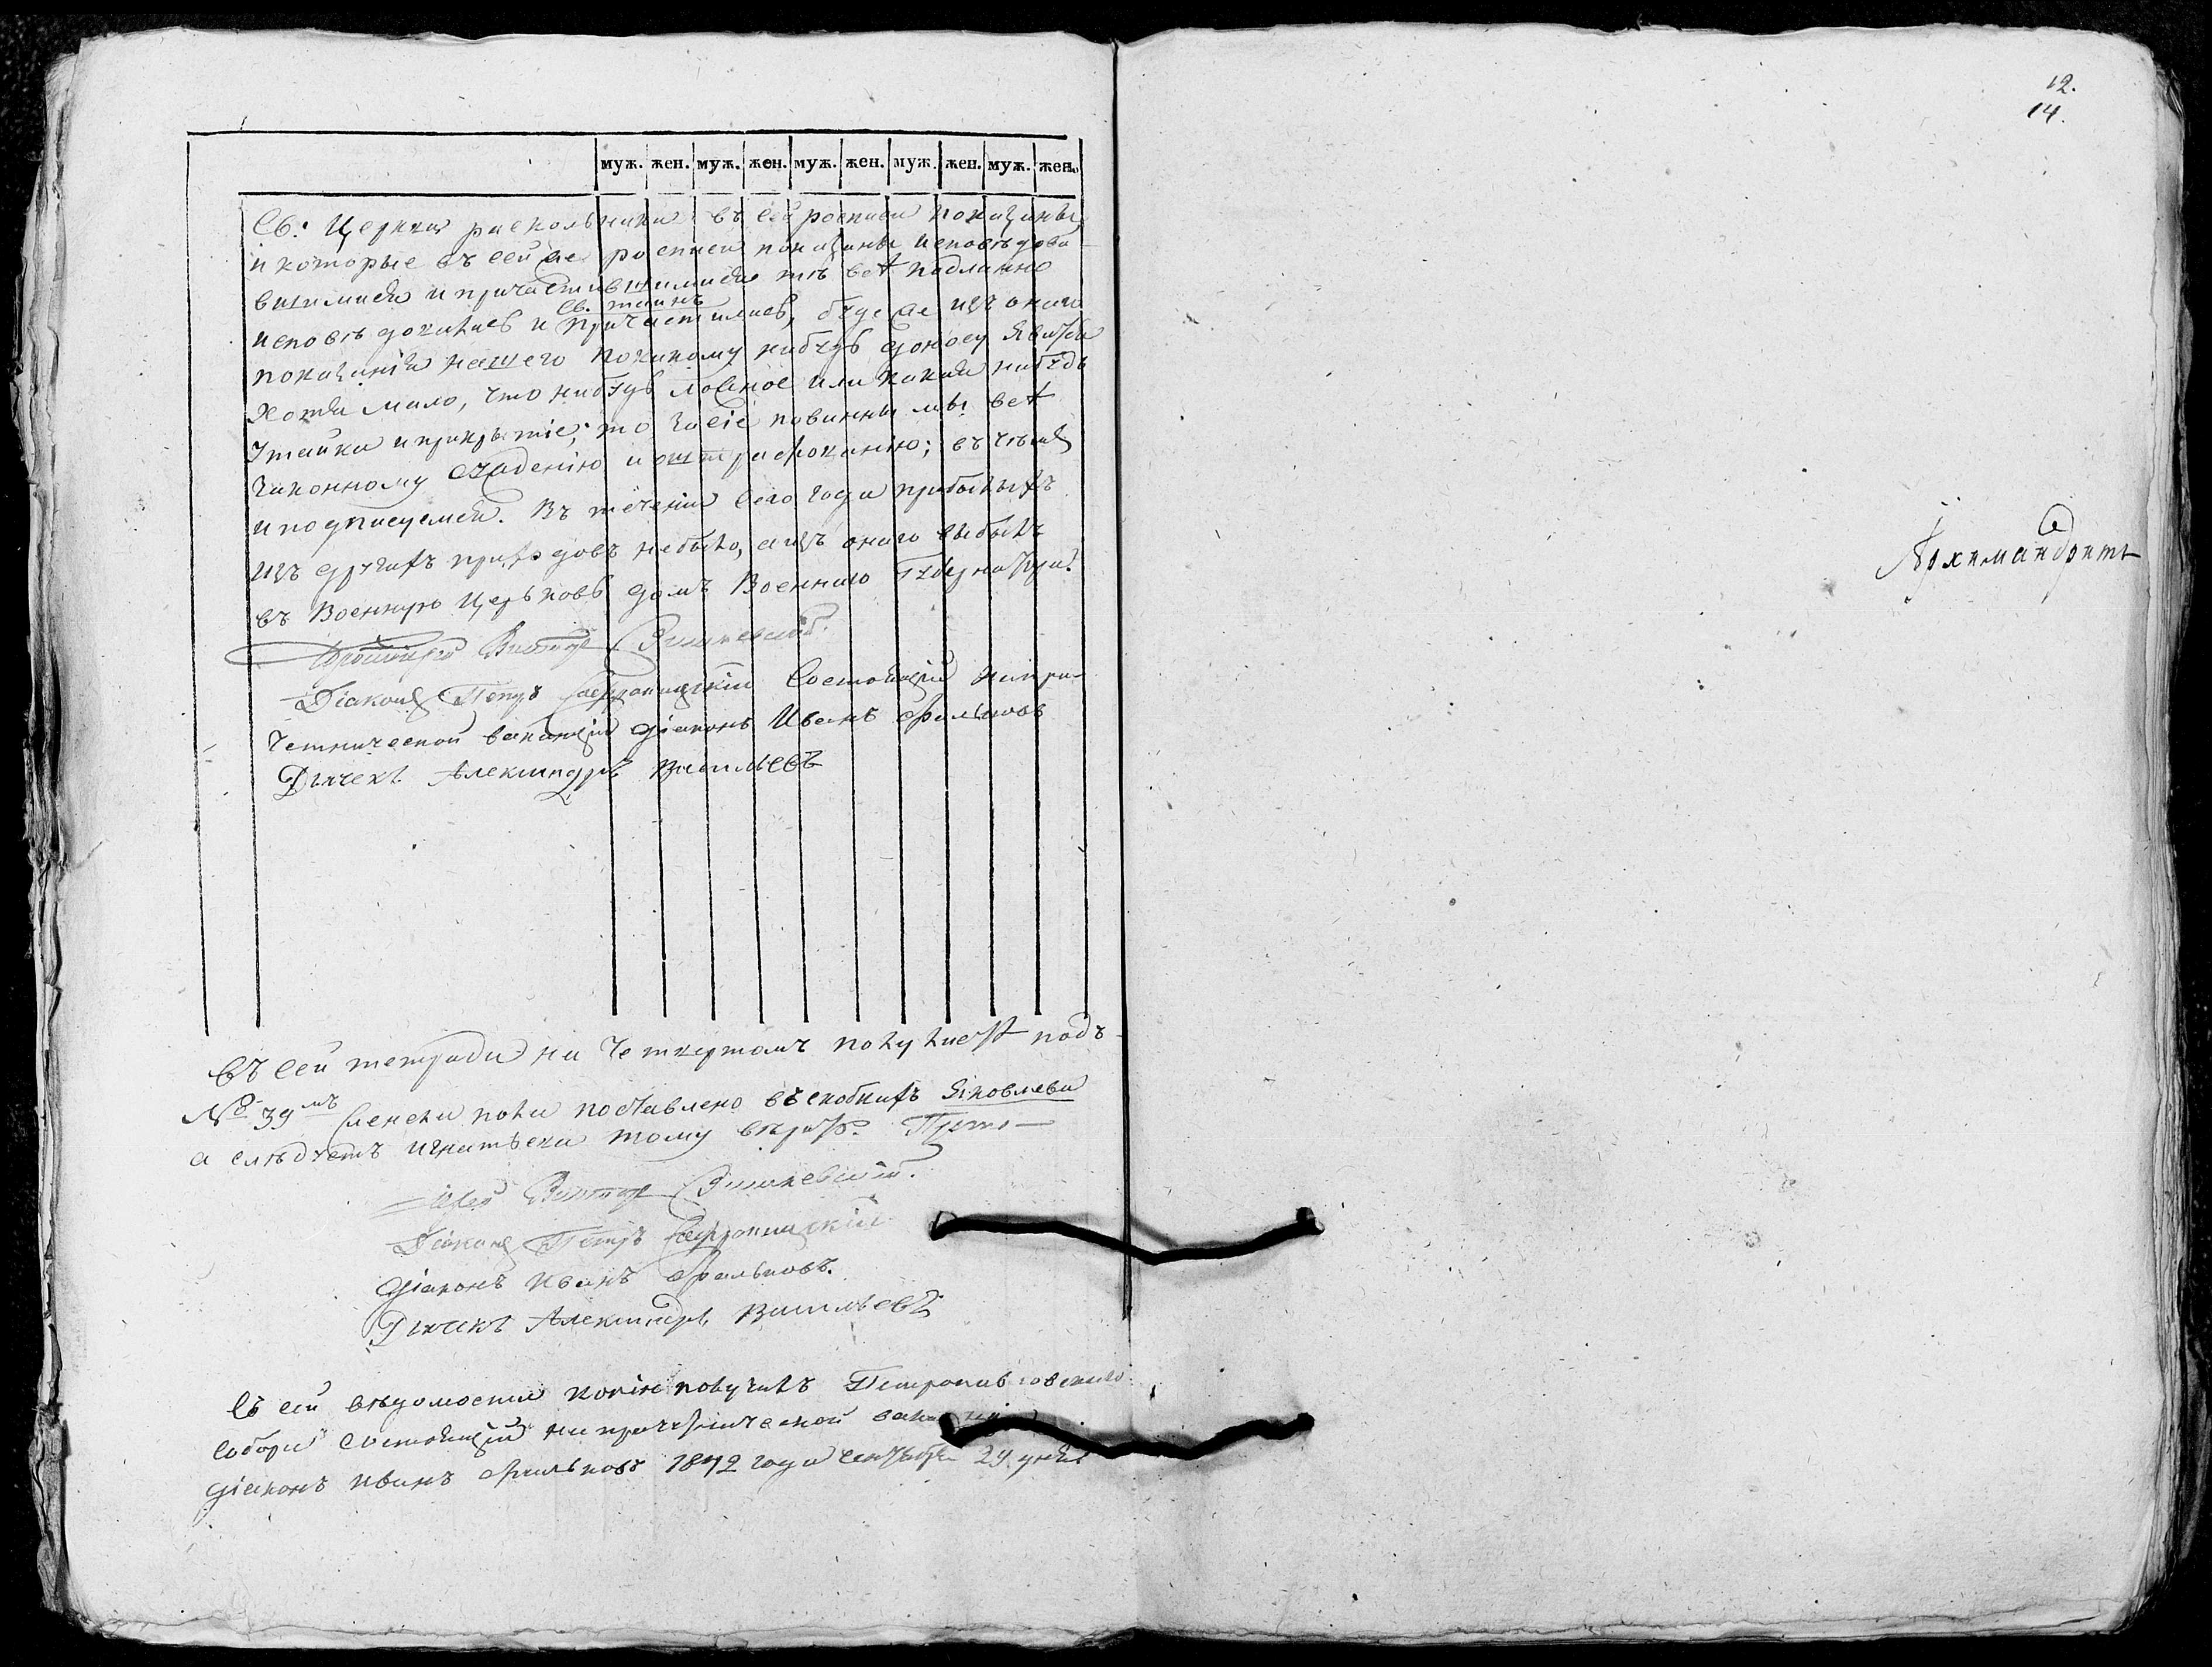 12.
14.
муж. жен. муж. жен. муж. жен. муж. жен. муж. жен.
Св: Церкви раскольники въ сей росписи показаны,
и которые въ сей же росписи показаны исповѣдова
вшимися и причастившимися тѣ всѣ подлинно
св. таинъ
исповѣдовались и причастились, буде же изъ онаго
показанія нашего покакому нибудь доносу явится
хотя мало, что нибудь ложное или какая нибудь
утайка и прикрытіе; то засіе повинны мы всѣ
законному суждению и оштрафованію; въ чѣмъ
и подписуемся. Въ теченіи сего года прибылыхъ
изъ другихъ приходовъ небыло, а изъ онаго выбылъ
въ Военную Церьковь домъ Военнаго Губернатора.
Протоіерей Викторъ
Діаконъ Петръ Состоящій напри-
четнической вакансіи діаконъ Иванъ Фальковъ
Дьячекъ Александръ Васильевъ
Въ сей тетради на четвертомъ полулистѣ подъ
№ 39мъ поставлено въ скобкахъ Яковлева
а слѣдуетъ Игнатьева тому вѣрить. Прото-
іерей Викторъ
Діаконъ Петръ
Діаконъ Иванъ Фальковъ.
Дьячекъ Александръ Васильевъ
Съ сей вѣдомости копію получилъ Петропавловскаго
собора состоящій на причетнической вакансіи
діаконъ Иванъ Фальковъ 1842 года Сентября 29 дня
Архимандритъ